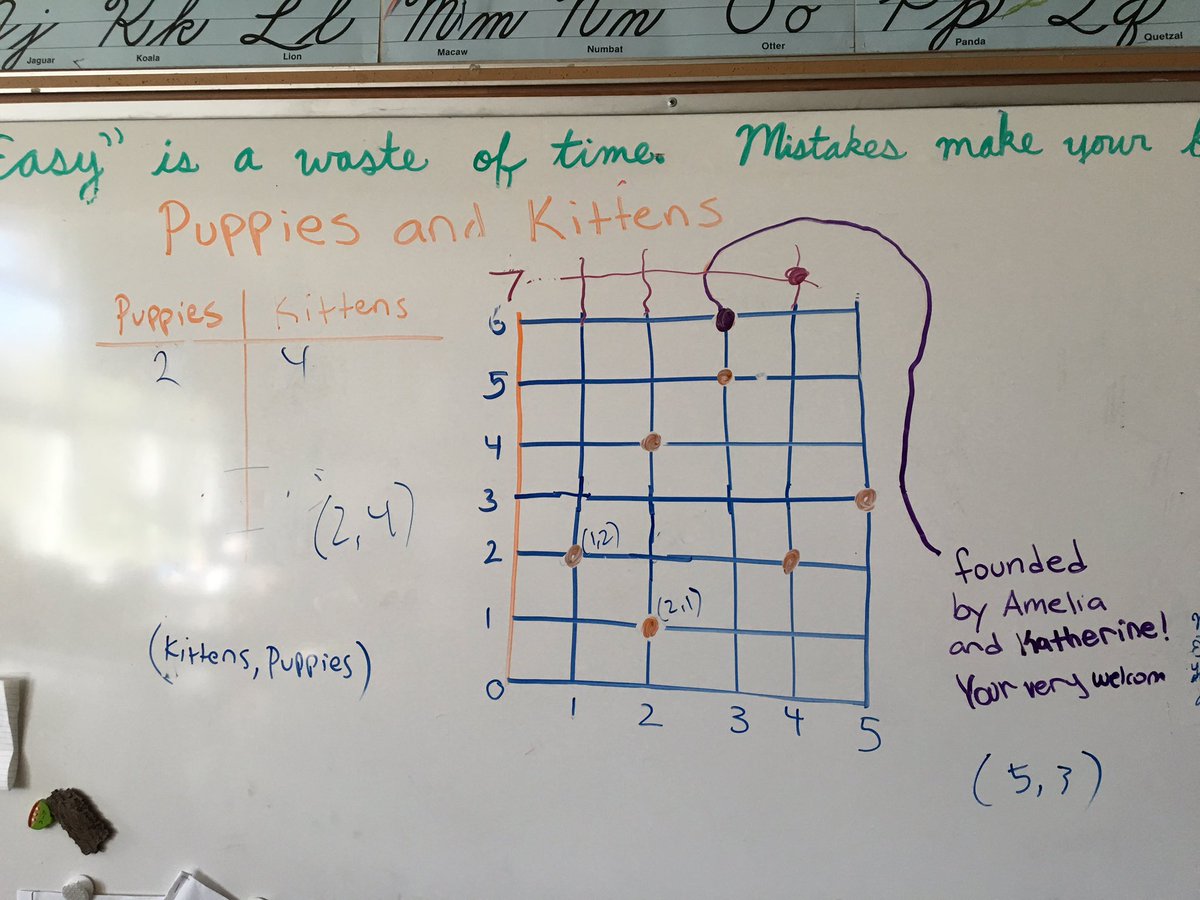 Jj Kk Ll Mm Nn Oo Pp Qq
Jaguar Koala Lion Macaw Numbat Otter Panda Quetzal
Easy" is a waste of time. Mistakes make your
Puppies and Kittens
Puppies Kittens
2 4
(2,4)
(Kittens, Puppies)
7
6
5
4
3
2
1
0
(1,2)
(2,1)
1 2 3 4 5
founded
by Amelia
and Katherine!
Your very welcom
(5,3)